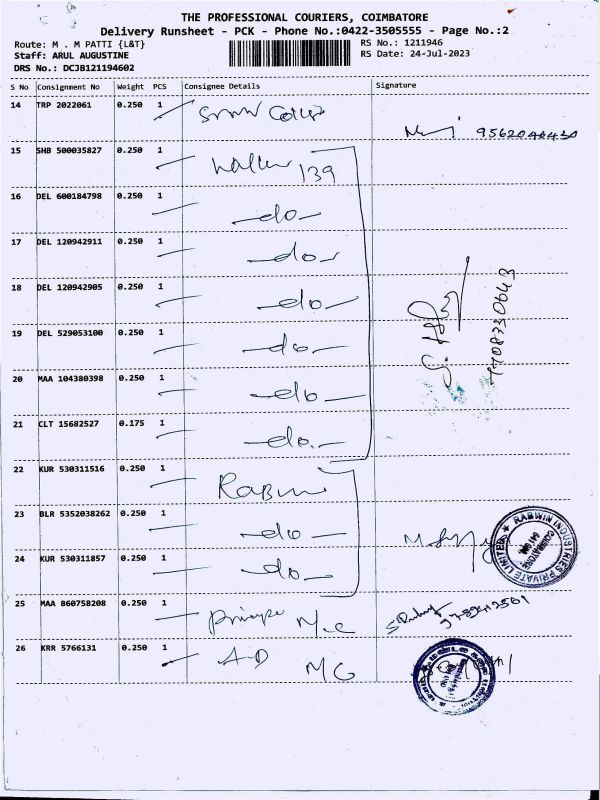 THE PROFESSIONAL COURIERS, COIMBATORE
Delivery Runsheet - PCK - Phone No.:0422-3505555 - Page No.:2
Route: M . M PATTI {L&T} RS No.: 1211946
Staff: ARUL AUGUSTINE RS Date: 24-Jul-2023
DRS No.: DCJB121194602
S No Consignment No Weight PCS Consignee Details Signature
14 TRP 2022061 0.250 1
15 SHB 500035827 0.250 1 139
16 DEL 600184798 0.250 1 -do-
17 DEL 120942911 0.250 1 -do-
18 DEL 120942905 0.250 1 -do-
19 DEL 529053100 0.250 1 -do-
20 MAA 104380398 0.250 1 -do-
21 CLT 15682527 0.175 1 -do-
22 KUR 530311516 0.250 1
23 BLR 5352038262 0.250 1 -do-
24 KUR 530311857 0.250 1 -do-
RABWIN INDUSTRIES PRIVATE LIMITED
25 MAA 860758208 0.250 1
26 KRR 5766131 0.250 1 AD MG